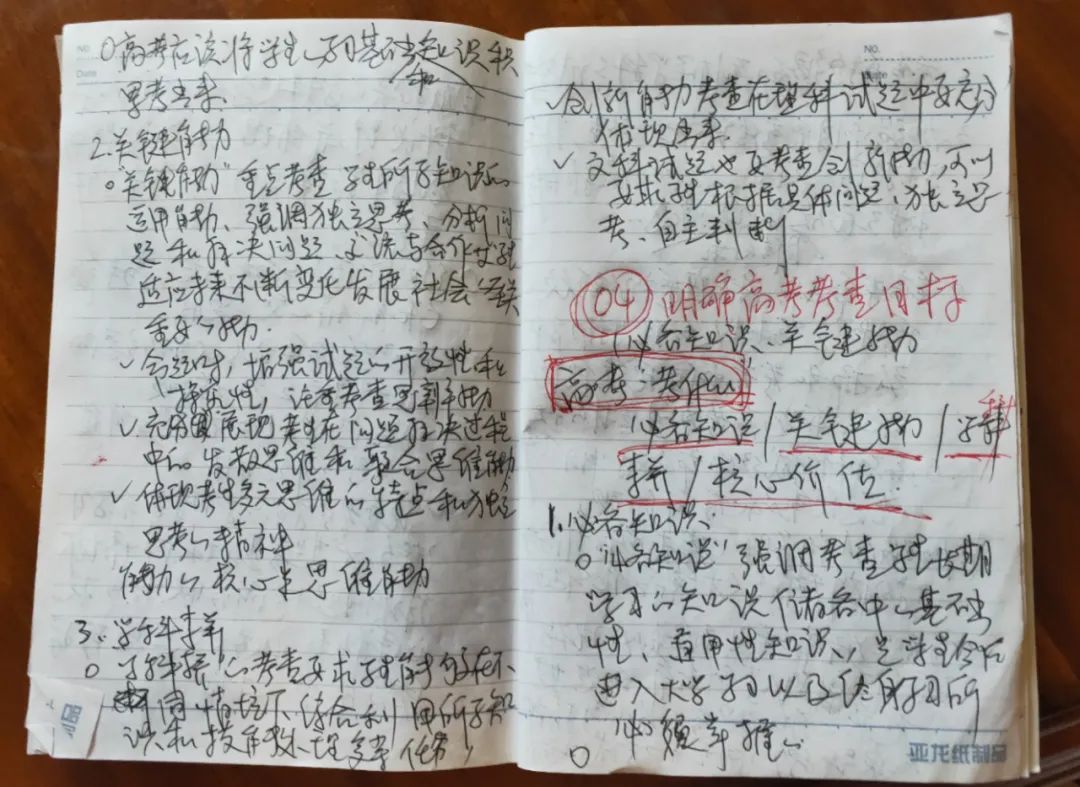 NO.
Date
○高考应该将学生学习基础知识积
和
思考出来
2.关键能力
○"关键能力"重点考查学生所学知识的
运用能力、强调独立思考、分析问
题和解决问题、交流与合作等学生
适应未来不断变化发展社会的至关
重要的能力.
✓命题时,增强试题的开放性和
探究性,注重考查创新能力
✓充分展现考生在问题解决过程
中的发散思维和聚合思维能力
✓体现考生多元思维的特点和独立
思考的精神
能力的核心是思维能力
3.学科素养
○学科素养"的考查要求学生能够在不
同情境下综合利用所学知
识和技能处理复杂任务,
NO.
Date
✓创新能力考查在理科试题中要充分
体现出来
✓文科试题也要考查创新能力,可以
要求学生根据具体问题、独立思
考、自主判断
04 明确高考考查目标
必备知识、关键能力
高考:考什么
必备知识/关键能力/学科
素养/核心价值.
1.必备知识.
○"必备知识"强调考查学生长期
学习的知识储备中的基础
性、通用性知识,是学生今后
进入大学学习以及终身学习所
必须掌握的
○
亚龙纸制品